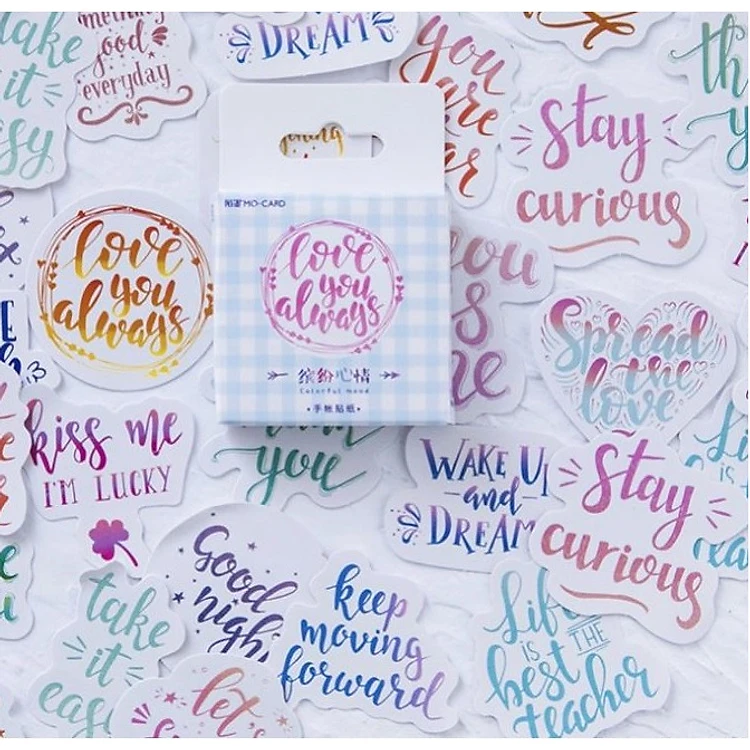 take
it
easy
something
good
everyday
DREAM
you
are
Stay
curious
love
you
always
陌墨 MO-CARD
love
you
always
缤纷心情
Colorful mood
·手帐贴纸·
you
Spread
the
love
kiss me
I'M LUCKY
you
WAKE UP
and
DREAM
Stay
curious
Good
night
keep
moving
forward
take
it
easy
let's
Life
IS THE
best
teacher